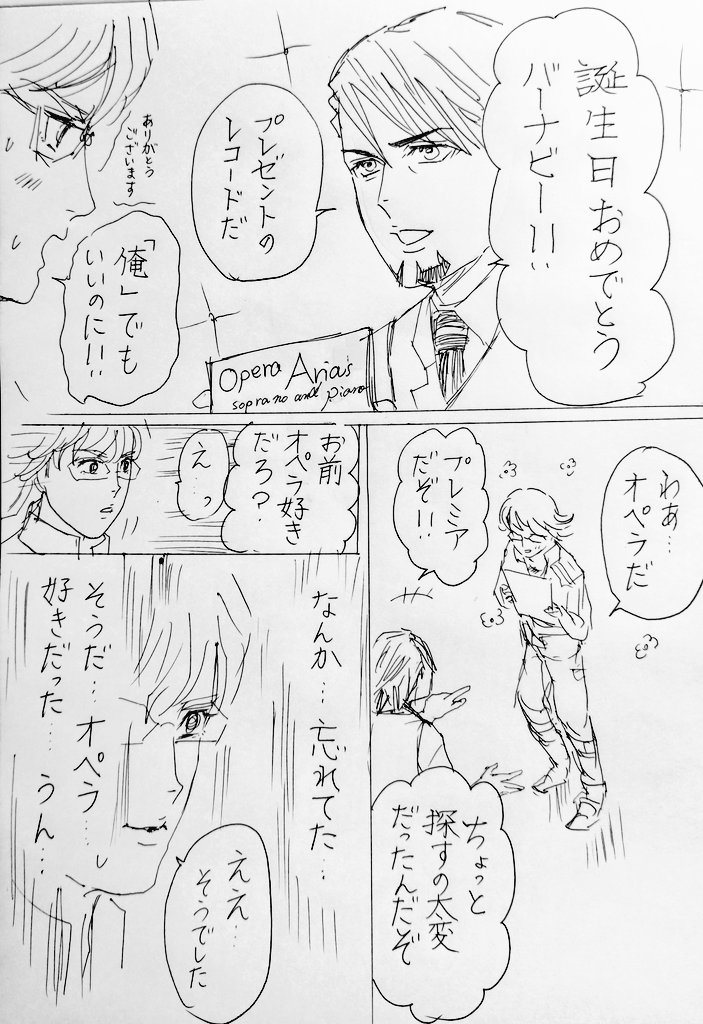 誕生日おめでとう
バーナビー!!
プレゼントの
レコードだ
ありがとう
ございます
「俺」でも
いいのに!!
Opera Arias
soprano and piano
わあ…
オペラだ
プレミア
だぞ!!
ちょっと
探すの太変
だったんだぞ
お前
オペラ好き
だろ?
え…っ
なんか…忘れてた…
そうだ…オペラ…
好きだった…うん…
ええ…
そうでした